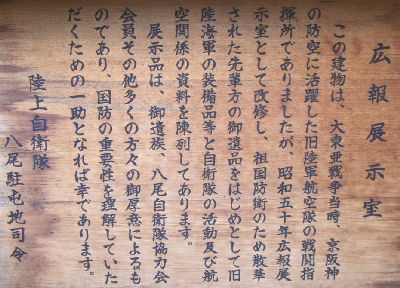 広報展示室
この建物は、大東亜戦争当時、京阪神
の防空に活躍した旧陸軍航空隊の戦闘指
揮所でありましたが、昭和五十年広報展
示室として改修し、祖国防衛のため散華
された先輩方の御遺品をはじめとして旧
陸海軍の装備品等と自衛隊の活動及び航
空関係の資料を陳列してあります。
展示品は、御遺族、八尾自衛隊協力会
会員その他多くの方々の御厚意によるも
のであり、国防の重要性を理解していた
だくための一助となれば幸であります。
陸上自衛隊
八尾駐屯地司令